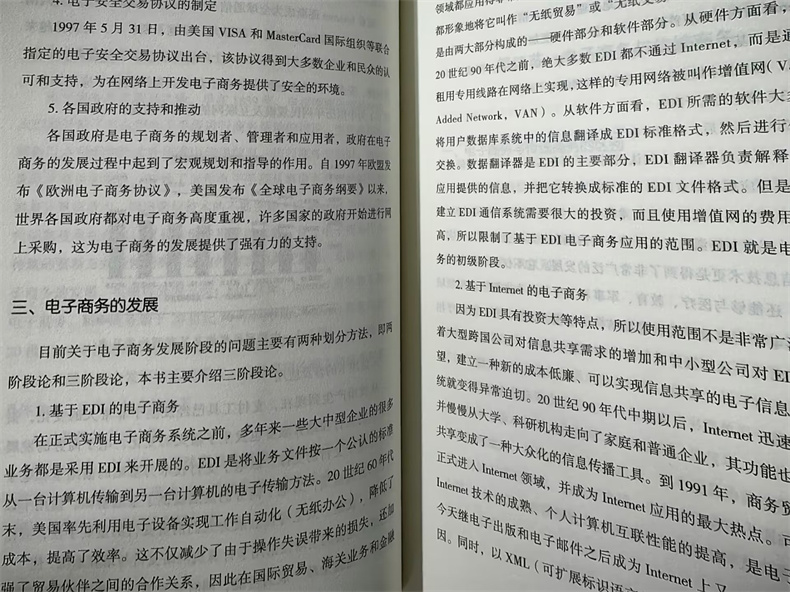 4. 电子安全交易协议的制定
1997 年 5 月 31 日，由美国 VISA 和 MasterCard 国际组织等联合
指定的电子安全交易协议出台，该协议得到大多数企业和民众的认
可和支持，为在网络上开发电子商务提供了安全的环境。
5. 各国政府的支持和推动
各国政府是电子商务的规划者、管理者和应用者，政府在电子
商务的发展过程中起到了宏观规划和指导的作用。自 1997 年欧盟发
布《欧洲电子商务协议》，美国发布《全球电子商务纲要》以来，
世界各国政府都对电子商务高度重视，许多国家的政府开始进行网
上采购，这为电子商务的发展提供了强有力的支持。
三、电子商务的发展
目前关于电子商务发展阶段的问题主要有两种划分方法，即两
阶段论和三阶段论，本书主要介绍三阶段论。
1. 基于 EDI 的电子商务
在正式实施电子商务系统之前，多年来一些大中型企业的很多
业务都是采用 EDI 来开展的。EDI 是将业务文件按一个公认的标准
从一台计算机传输到另一台计算机的电子传输方法。20 世纪 60 年代
末，美国率先利用电子设备实现工作自动化（无纸办公），降低了
成本，提高了效率。这不仅减少了由于操作失误带来的损失，还加
强了贸易伙伴之间的合作关系，因此在国际贸易、海关业务和金融
领域都应用得非
都形象地将它叫作“无纸贸易”或“无纸交
是由两大部分构成的——硬件部分和软件部分。从硬件方面看，
20 世纪 90 年代之前，绝大多数 EDI 都不通过 Internet，而是通
租用专用线路在网络上实现，这样的专用网络被叫作增值网（V
Added Network，VAN）。从软件方面看，EDI 所需的软件大
将用户数据库系统中的信息翻译成 EDI 标准格式，然后进行
交换。数据翻译器是 EDI 的主要部分，EDI 翻译器负责解释
应用提供的信息，并把它转换成标准的 EDI 文件格式。但是
建立 EDI 通信系统需要很大的投资，而且使用增值网的费用
高，所以限制了基于 EDI 电子商务应用的范围。EDI 就是电
务的初级阶段。
2. 基于 Internet 的电子商务
因为 EDI 具有投资大等特点，所以使用范围不是非常广
着大型跨国公司对信息共享需求的增加和中小型公司对 ED
望，建立一种新的成本低廉、可以实现信息共享的电子信息
统就变得异常迫切。20 世纪 90 年代中期以后，Internet 迅速
并慢慢从大学、科研机构走向了家庭和普通企业，其功能也
共享变成了一种大众化的信息传播工具。到 1991 年，商务贸
正式进入 Internet 领域，并成为 Internet 应用的最大热点。
Internet 技术的成熟、个人计算机互联性能的提高，是电子
今天继电子出版和电子邮件之后成为 Internet 上又
因。同时，以 XML（可扩展标识语言